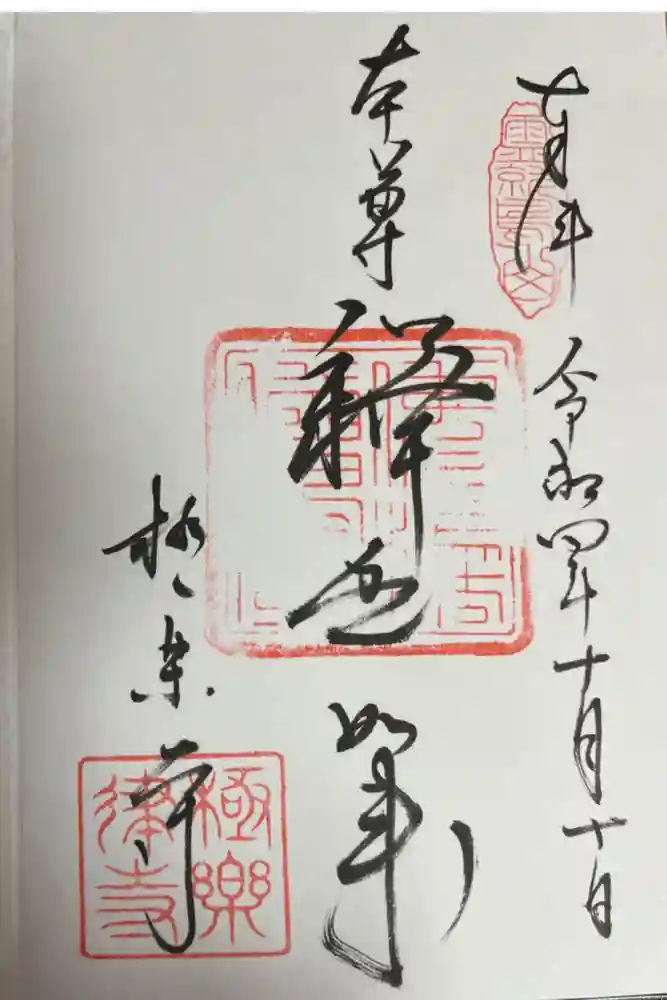 奉拝
令和四年十月十日
本尊
釋迦如来
極楽寺
霊鷲山
極樂律寺